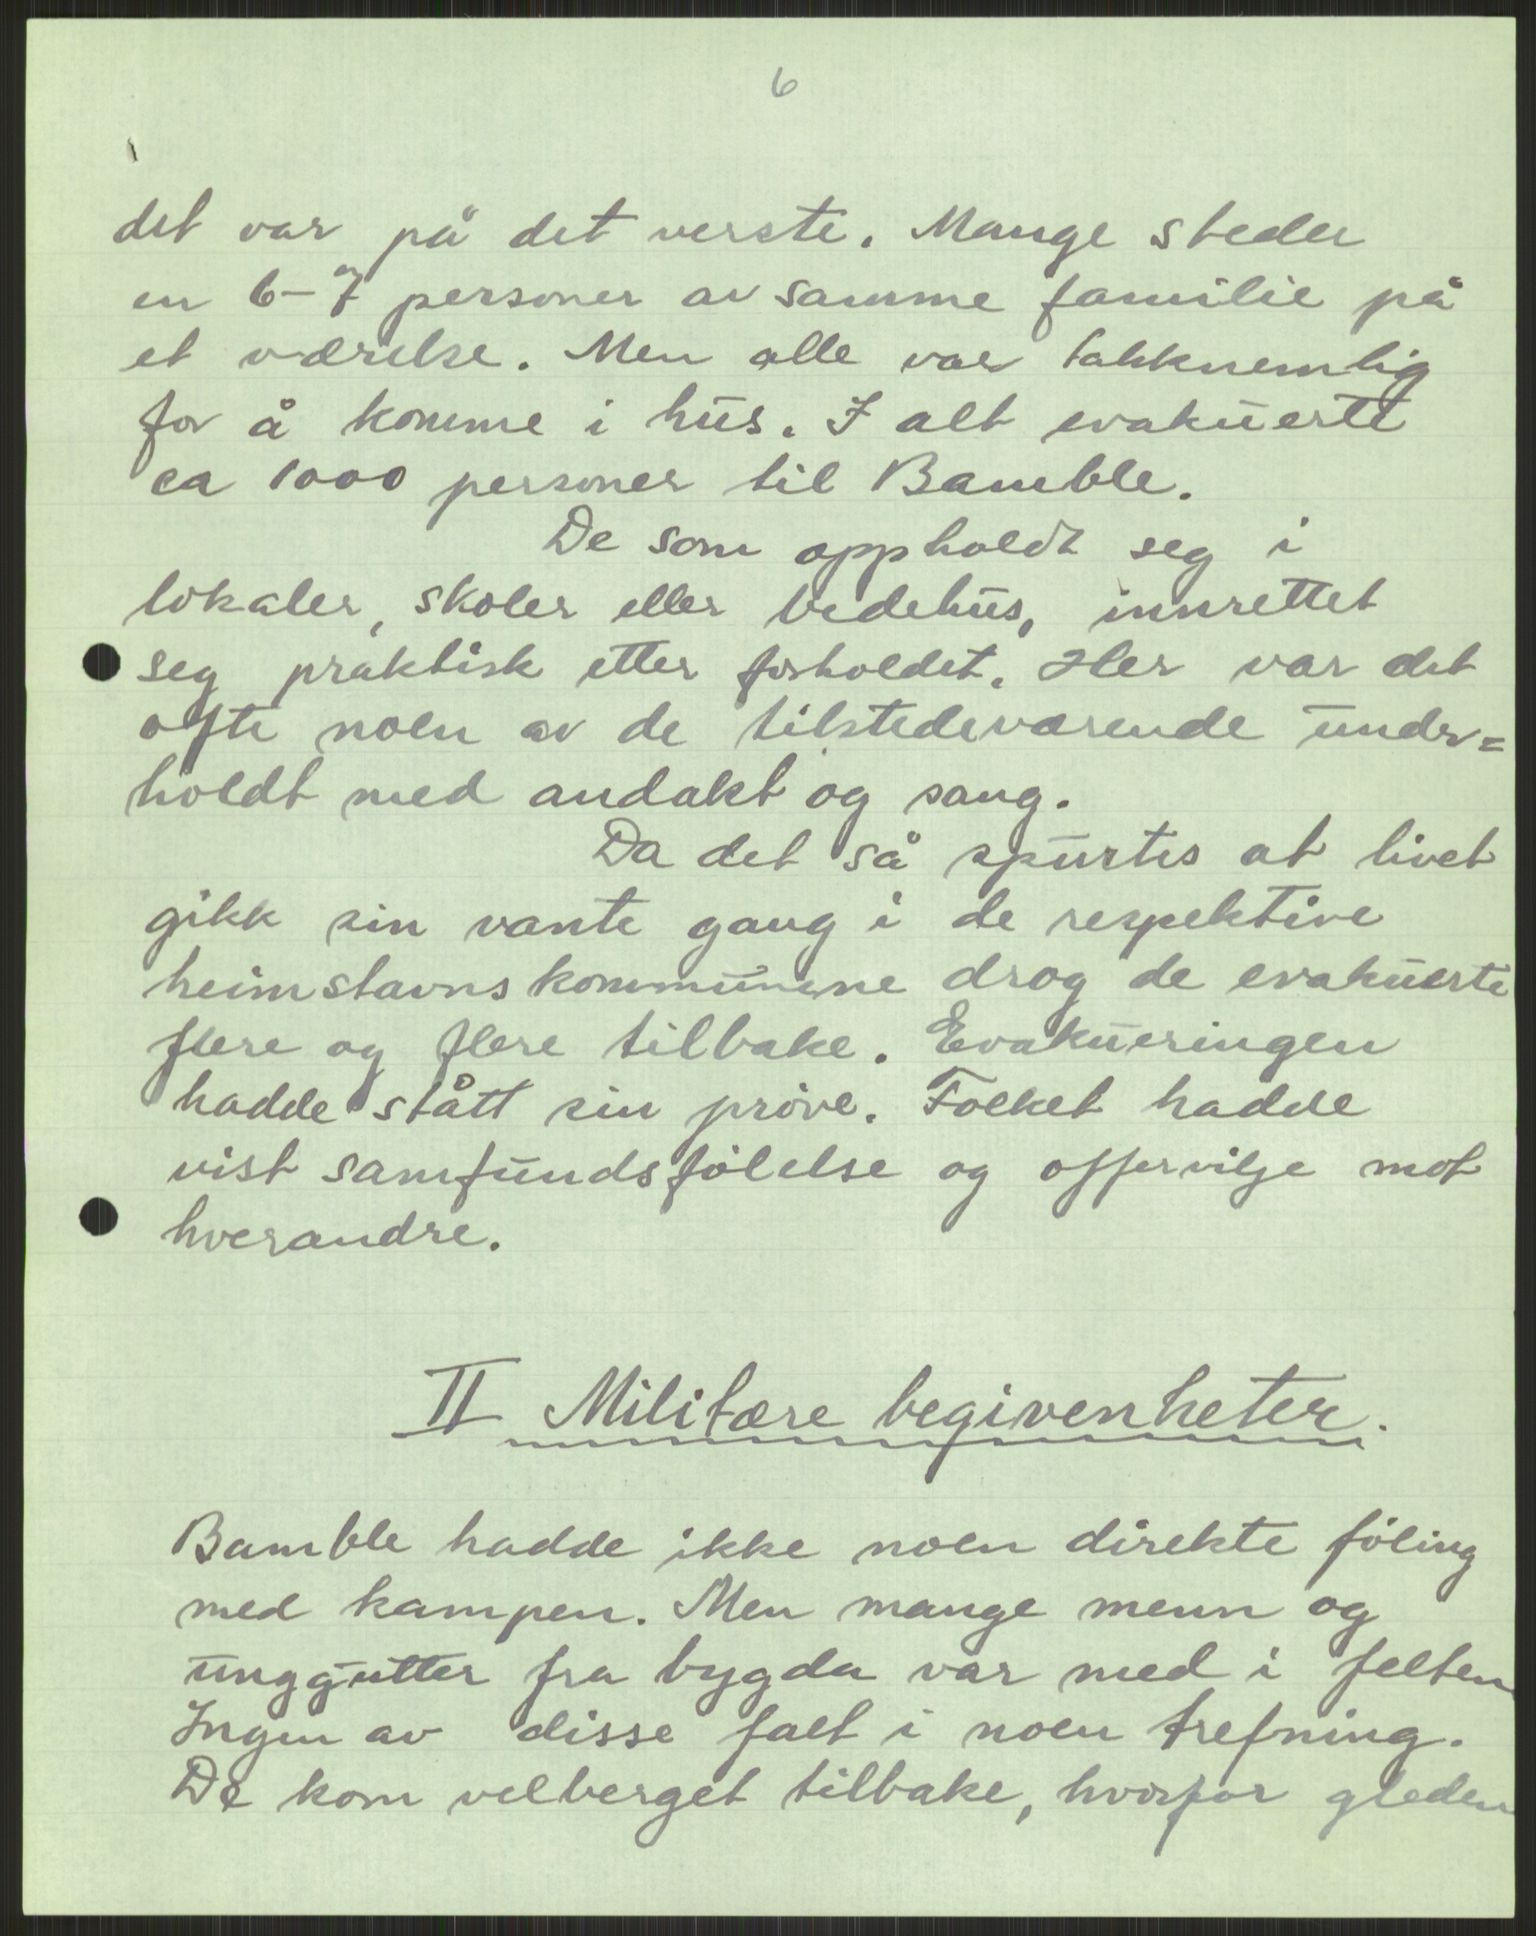 6
det var på det verste. Mange steder
en 6-7 personer av samme familie på
et værelse. Men alle var takknemlig
for å komme i hus. I alt evakuerte
ca 1000 personer til Bamble.
De som oppholdt seg i
lokaler, skoler eller bedehus, innrettet
seg praktisk etter forholdet. Her var det
ofte noen av de tilstedeværende under=
holdt med andakt og sang.
Da det så spurtes at livet
gikk sin vante gang i de respektive
heimstavnskommunene drog de evakuerte
flere og flere tilbake. Evakueringen
hadde stått sin pröve. Folket hadde
vist samfundsfölelse og offervilje mot
hverandre.
II Militære begivenheter.
Bamble hadde ikke noen direkte föling
med kampen. Men mange menn og
unggutter fra bygda var med i felten
Ingen av disse falt i noen trefning.
De kom velberget tilbake, hvorfor gleden